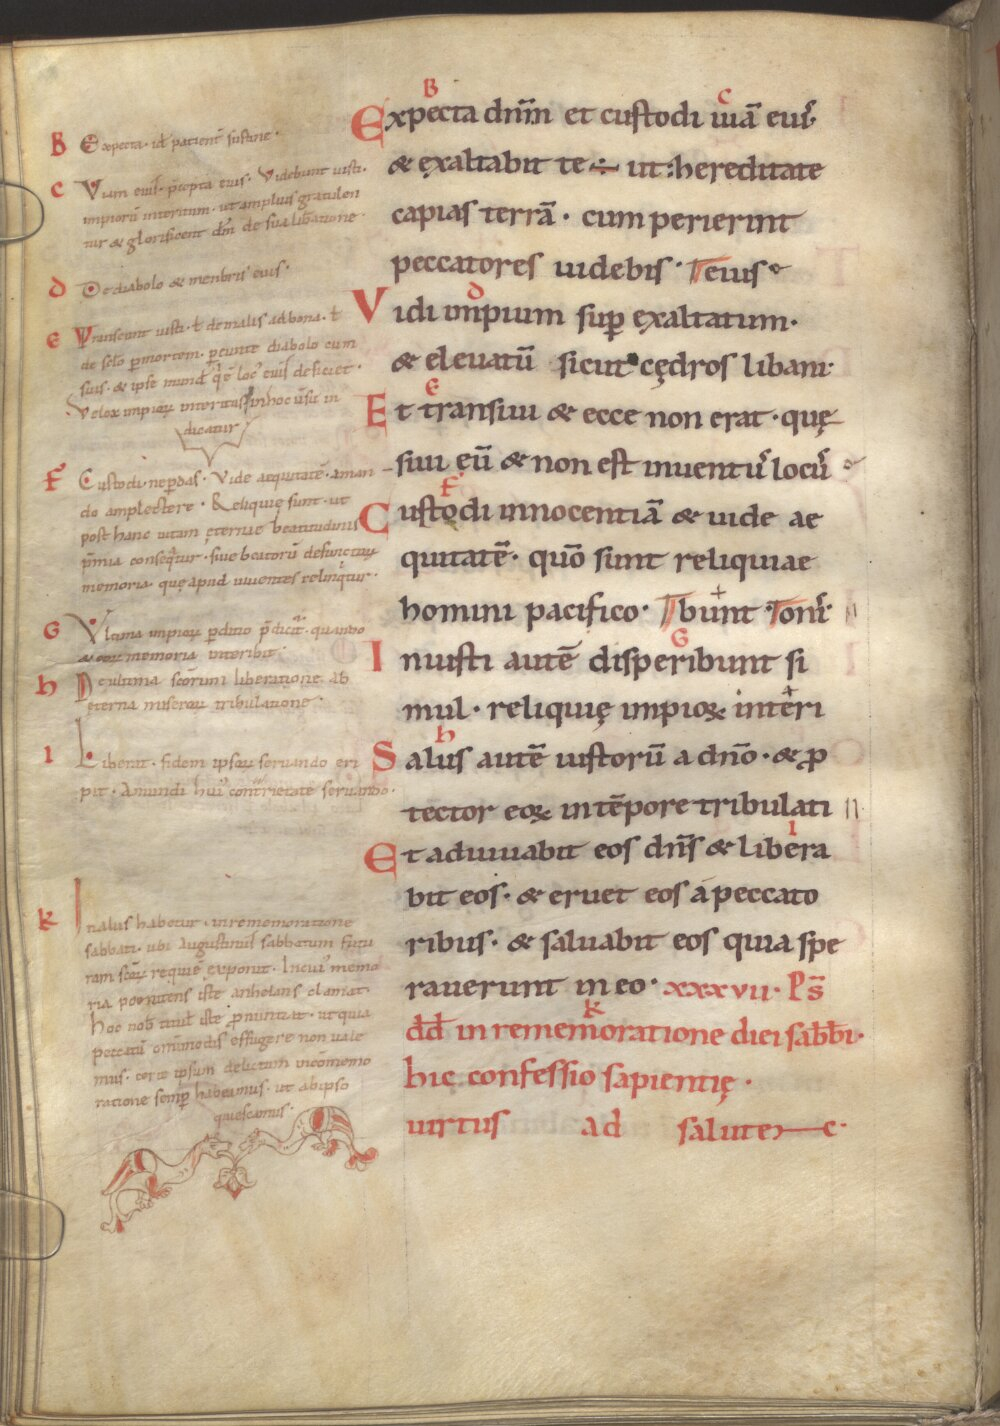 B
Expecta· id÷ patient̄ sustine·
C
Viam eius· p̄cepta eius· Videbunt iusti·
impiorū interitum· ut amplius gratulen
tur & glorificent dm̄ de sua liberatione·
D
De diabolo & menbris eius·
E
Transeunt iusti· ł de malis ad bona· ł
de sclo p mortem· pereunte diabolo cum
suis· & ipse mund' loc' eius deficiet·
Velox impioꝝ interitus in hoc uersu in
dicatur
F
Custodi ne perdas· Vide aequitatē· aman
do amplectere· Reliquię sunt· ut
post hanc uitam ęternae beatitudinis
p̄mia conseq̄tur· siue beatorū defunctoꝝ
memoria· quę apud uiuentes relinq̄tur·
G
Vltima impioꝝ p̄ditio p̄dicit̄· quando
& eoꝝ memoria interibit·
h
De ultima scōrum liberatione ab
ęterna miseroꝝ tribulatione·
I
Liberat· fidem ipsoꝝ seruando eri
pit· A mundi hui' contrarietate seruando·
k
In aliis habetur· in rememoratione
sabbati· ubi augustinus sabbatum futu
ram scōꝝ requiē exponit· In cui' memo
ria poenitens iste anhelans clamat·
Hoc nob̄ titul' iste p̄nuntiat· ut quia
peccatū omnimodis effugere non uale
mus· certe ipsum delictum in cōmemo
ratione semp habeamus· ut ab ipso
quiescamus·
B C
Expecta dnm̄ et custodi uiā eiu᷒·
& exaltabit te ÷ ut : hereditate
capias terrā· cum perierint
peccatores uidebis· Τeius
D
Vidi impium sup̄ exaltatum·
& eleuatū sicut cędros libani·
E
Et transiui & ecce non erat· quę
siui eū & non est inuentu᷒ locu᷒
F
Custodi innocentiā & uide ae
quitatē· quō sunt reliquiae
homini pacifico· Τbunt Τom᷒·
G
Iniusti autē disperibunt si
mul· reliquię impioꝝ interi
h
Salus autē iustorū a dnō· & p̄
tector eoꝝ in tēpore tribulati
I
Et adiuuabit eos dns̄ & libera
bit eos· & eruet eos a peccato
ribus· & saluabit eos quia spe
rauerunt in eo· xxxvii· Ps̄
k
dd̄ in rememoratione diei sab̄b̄i·
hic confessio sapientię·
uirtus ad salutem c·